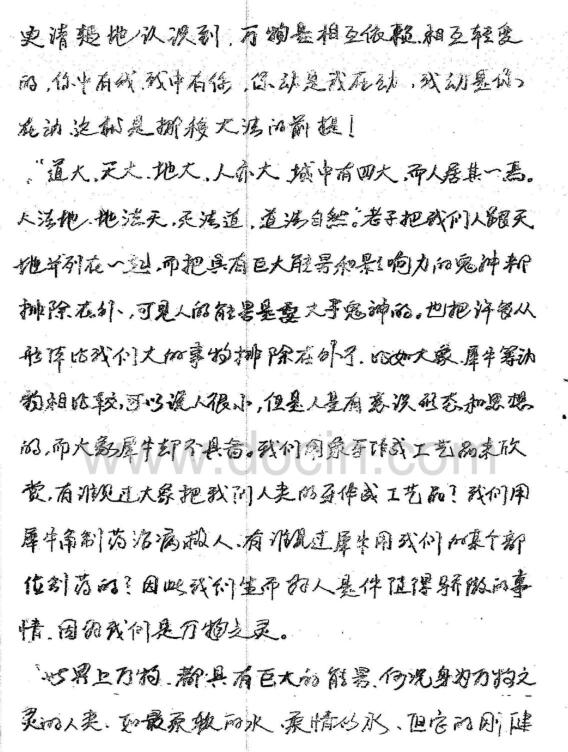 更清楚地认识到，万物是相互依赖、相互转变
的，你中有我，我中有你，你动是我在动，我动是你
在动，这就是挪移大法的前提！
“道大，天大，地大，人亦大，域中有四大，而人居其一焉。
人法地，地法天，天法道，道法自然。”老子把我们人跟天
地并列在一起，而把具有巨大能量和影响力的鬼神都
排除在外，可见人的能量是要大于鬼神的。也把许多从
形体比我们大的事物排除在外了，比如大象、犀牛等动
物相比较，可以说人很小，但是人是有意识形态和思想
的，而大象犀牛却不具备。我们用象牙作成工艺品来欣
赏，有谁见过大象把我们人类的牙作成工艺品？我们用
犀牛角制药治病救人，有谁见过犀牛用我们的某个部
位制药的？因此我们生而为人是件值得骄傲的事
情，因为我们是万物之灵。
世界上万物，都具有巨大的能量，何况身为万物之
灵的人类，如最柔软的水，柔情似水，但它的刚健
www.docin.com